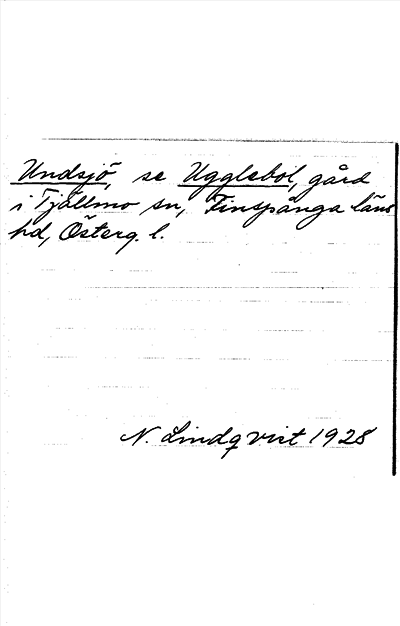 Undsjö, se Ugglebol, gård
i Tjällmo sn, Finspånga läns
hd, Österg. l.
N. Lindqvist 1928